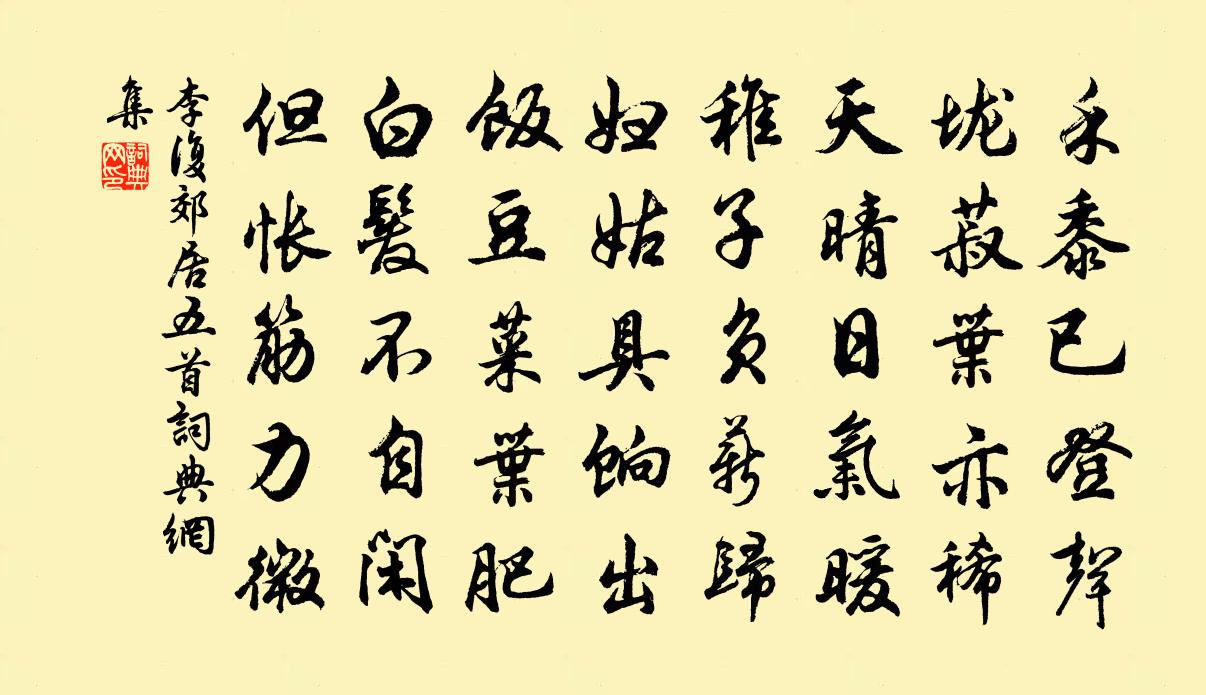 禾黍已登
垅菽葉亦稀
天晴日氣暖
稚子負薪歸
妇姑具餉出
飯豆菜葉肥
白髮不自闲
但怅筋力微
李復郊居五首詞典網
集
詞典网印